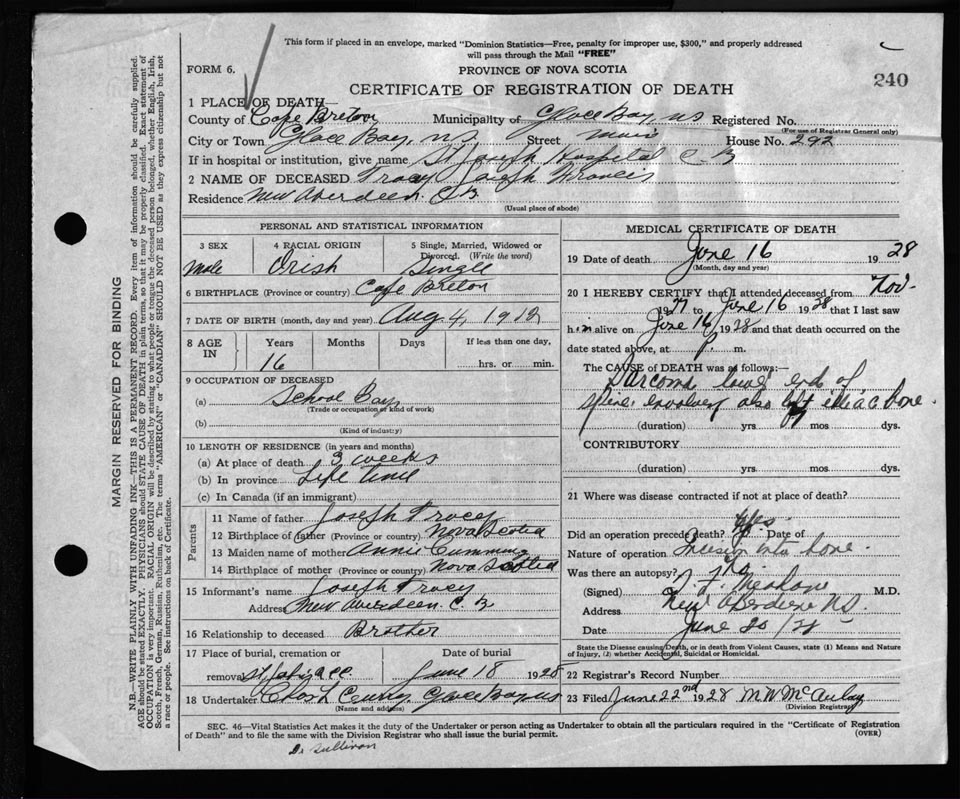 This form if placed in an envelope, marked "Dominion Statistics—Free, penalty for improper use, $300," and properly addressed
will pass through the Mail "FREE"
FORM 6.
PROVINCE OF NOVA SCOTIA
240
CERTIFICATE OF REGISTRATION OF DEATH
1 PLACE OF DEATH—
County of Cape Breton Municipality of Glace Bay, NS Registered No.
(For use of Registrar General only)
City or Town Glace Bay, N.S. Street Main House No. 292
If in hospital or institution, give name St Joseph Hospital C-B
2 NAME OF DECEASED Tracey Joseph Francis
Residence New Aberdeen. C B
(Usual place of abode)
MARGIN RESERVED FOR BINDING
N.B.—WRITE PLAINLY WITH UNFADING INK—THIS IS A PERMANENT RECORD. Every item of information should be carefully supplied.
AGE should be stated EXACTLY. PHYSICIANS should STATE CAUSE OF DEATH in plain terms, so that it may be properly classified. Exact statement of
OCCUPATION is very important. RACIAL ORIGIN will be described by stating to what people or tongue the deceased person belonged, whether English, Irish,
Scotch, French, German, Russian, Ruthenian, etc. The terms "AMERICAN" or "CANADIAN" SHOULD NOT BE USED as they express citizenship but not
a race or people. See instructions on back of Certificate.
PERSONAL AND STATISTICAL INFORMATION
3 SEX
male
4 RACIAL ORIGIN
Irish
5 Single, Married, Widowed or
Divorced. (Write the word)
Single
6 BIRTHPLACE (Province or country) Cape Breton
7 DATE OF BIRTH (month, day and year) Aug 4, 1912
8 AGE
IN
Years
Months
Days
If less than one day,
16
hrs. or min.
9 OCCUPATION OF DECEASED
(a) School Boy
(Trade or occupation or kind of work)
(b)
(Kind of industry)
10 LENGTH OF RESIDENCE (in years and months)
(a) At place of death 3 weeks
(b) In province Life time
(c) In Canada (if an immigrant)
Parents
11 Name of father Joseph Tracey
12 Birthplace of father (Province or country) Nova Scotia
13 Maiden name of mother Annie Cumming
14 Birthplace of mother (Province or country) Nova Scotia
15 Informant's name Joseph Tracey
Address New Aberdeen. C. B
16 Relationship to deceased Brother
17 Place of burial, cremation or
Date of burial
removal June 18 1928
18 Undertaker Glace Bay NS
(Name and address)
MEDICAL CERTIFICATE OF DEATH
19 Date of death June 16 1928
(Month, day and year)
20 I HEREBY CERTIFY that I attended deceased from Nov.
1927 to June 16 1928 that I last saw
him alive on June 16 1928 and that death occurred on the
date stated above, at P. m.
The CAUSE of DEATH was as follows:—
Sarcoma lower end of
spine involving also left iliac bone.
(duration) yrs mos dys.
CONTRIBUTORY
(duration) yrs. mos. dys.
21 Where was disease contracted if not at place of death?
Did an operation precede death? Yes. Date of
Nature of operation Incision into bone
Was there an autopsy? No
(Signed) M.D.
Address New Aberdeen NS
Date June 20/28
State the Disease causing Death, or in death from Violent Causes, state (1) Means and Nature
of Injury, (2) whether Accidental, Suicidal or Homicidal.
22 Registrar's Record Number
23 Filed June 22nd 1928 M W McAulay
(Division Registrar)
SEC. 46—Vital Statistics Act makes it the duty of the Undertaker or person acting as Undertaker to obtain all the particulars required in the "Certificate of Registration
of Death" and to file the same with the Division Registrar who shall issue the burial permit.
(OVER)
Sullivan